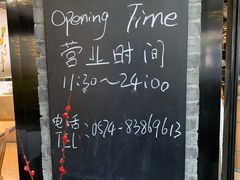 Opening Time
营业时间
11:30～24:00
电话
TEL:0574-83869613